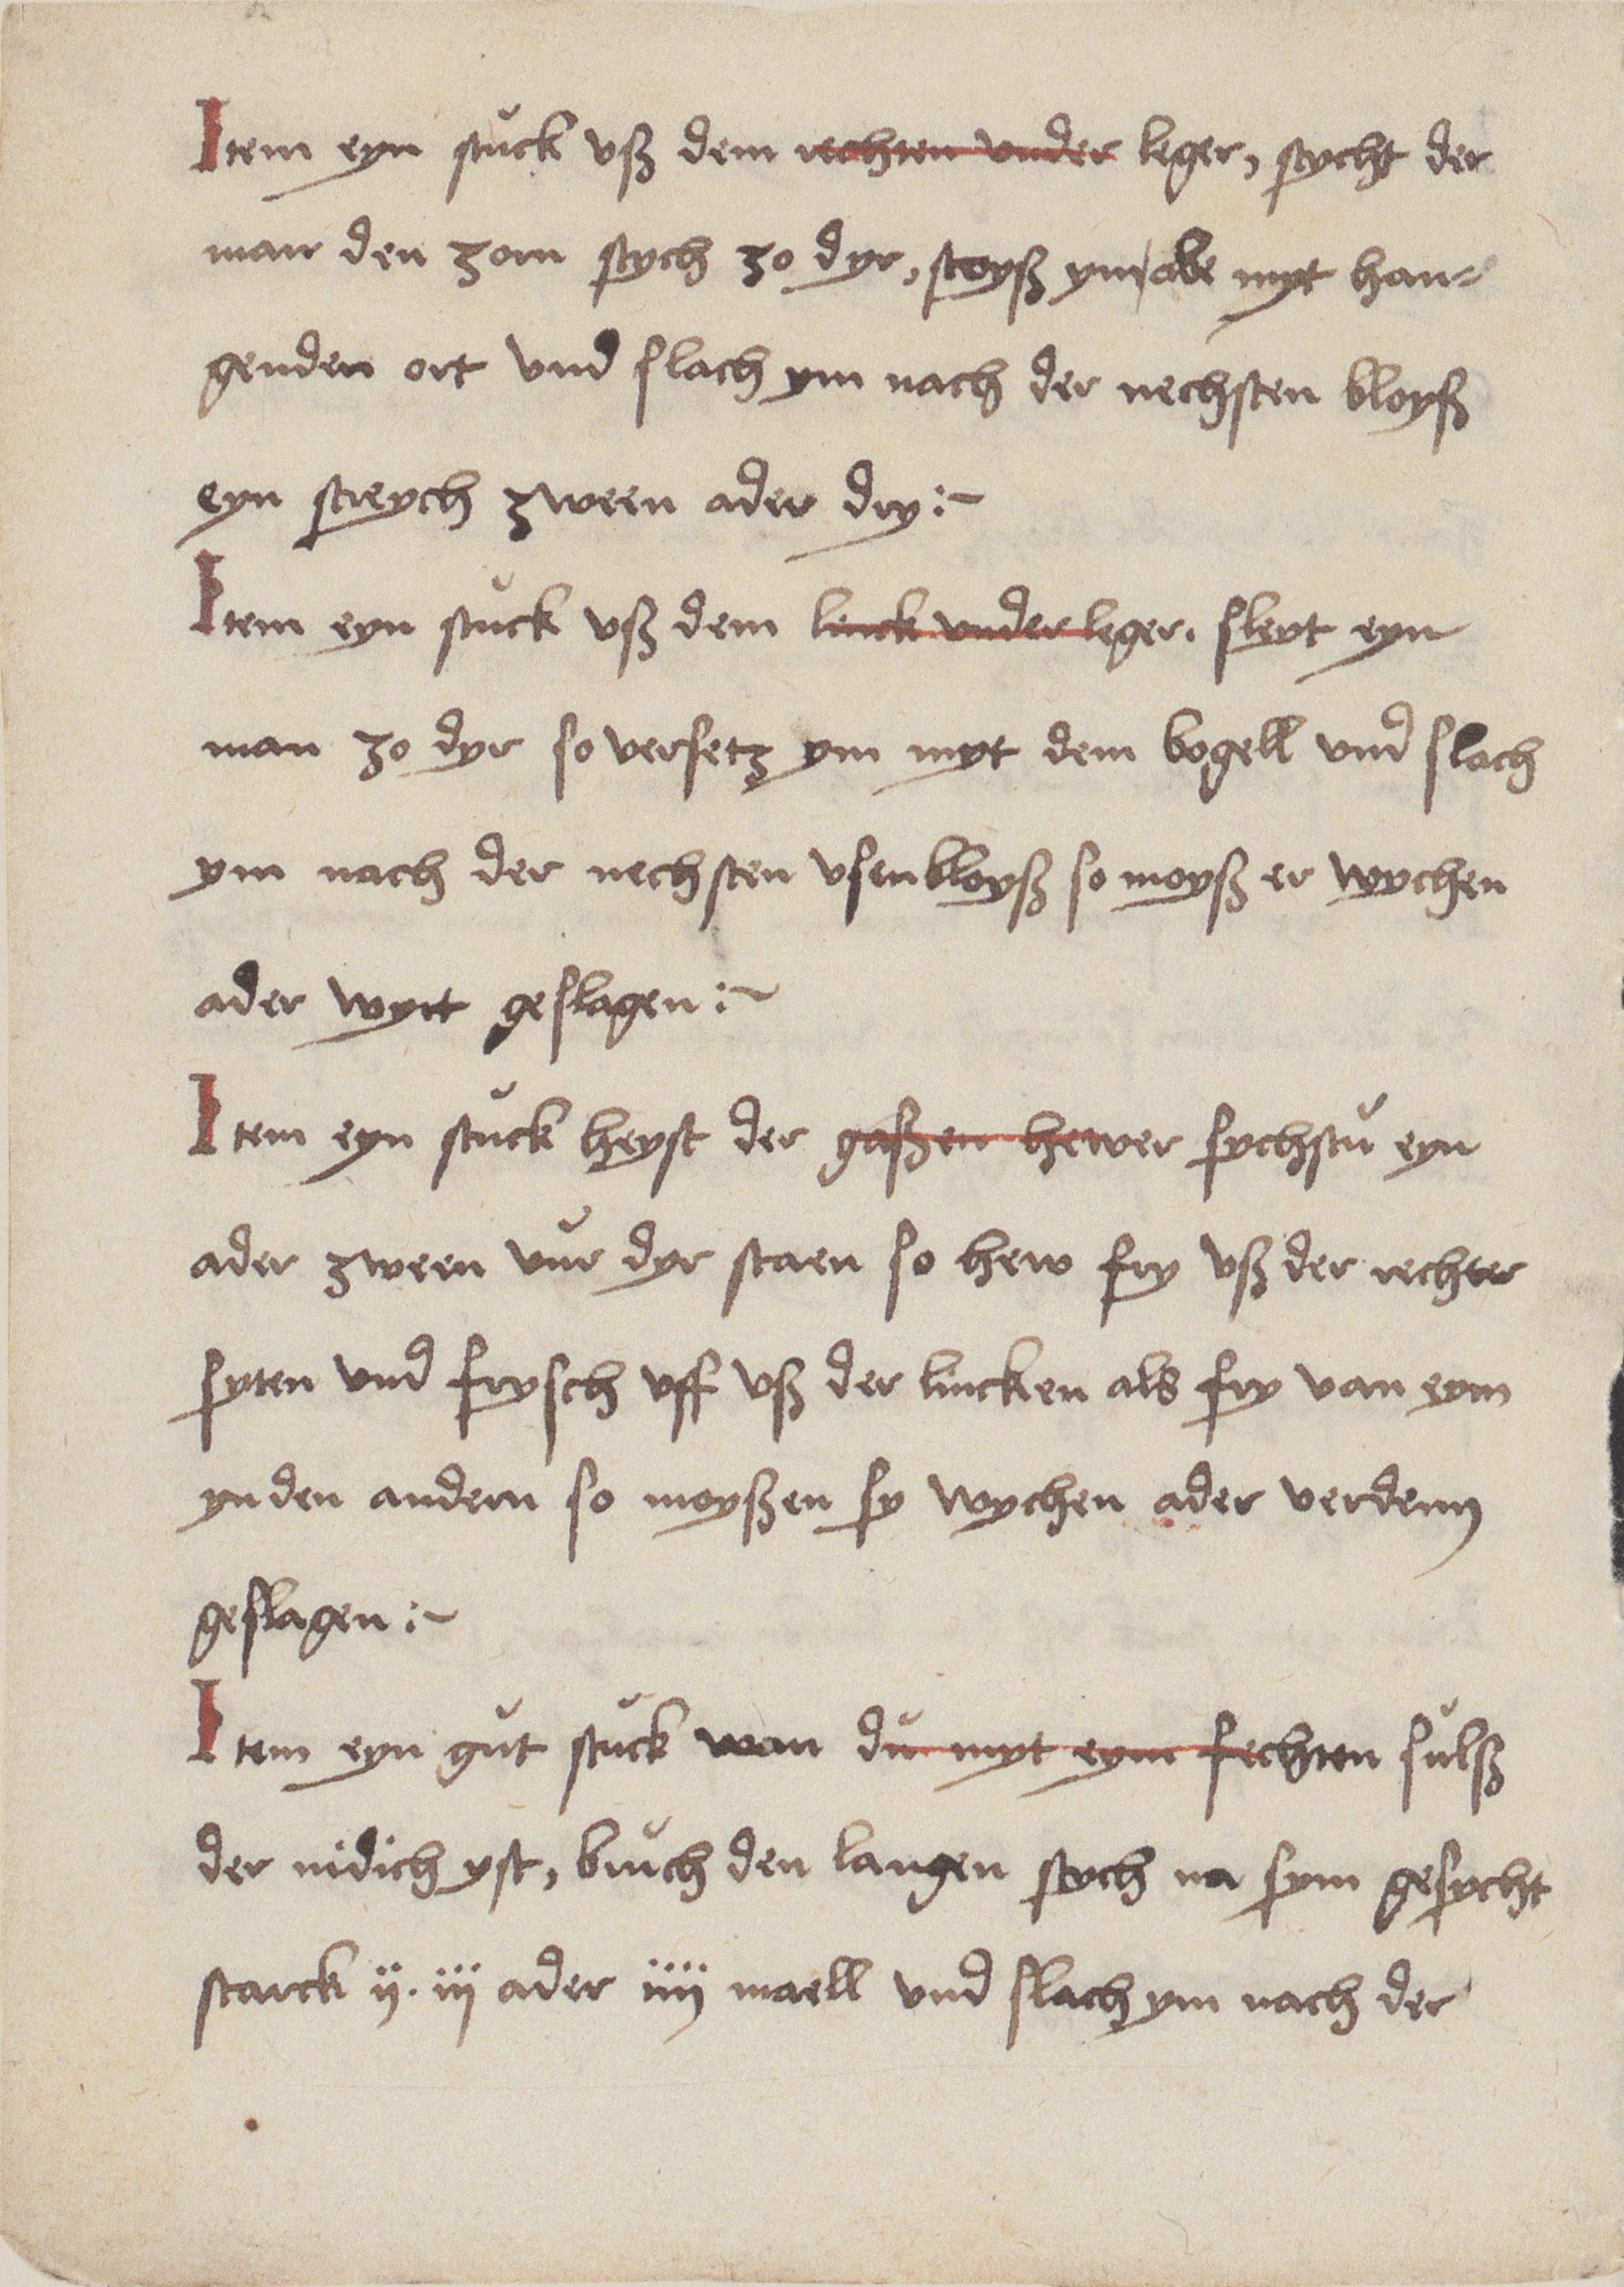 Item eyn stuck vß dem rechten vnder leger, stycht der
man den zorn stych zo dyr, stoyß ym abe myt han-
genden ort vnd slach ym nach der nechsten bloyß
eyn streych zween ader dry :~
Item eyn stuck vß dem linck vnder leger. sleyt eyn
man zo dyr so versetz ym myt dem bogell vnd slach
ym nach der nechsten vsen bloyß so moyß er wychen
ader wyrt geslagen :~
Item eyn stuck heyst der gaßen hewer sychstu eyn
ader zween vur dyr staen so hew fry vß der rechter
syten vnd frysch vff vß der lincken als fry van eym
yn den andern so moyßen sy wychen ader verdenn
geslagen :~
Item eyn gut stuck wan du myt eym fechten sulß
der nidich yst, bruch den langen stych na sym gesycht
starck ij. iij ader iiij maell vnd slach ym nach der